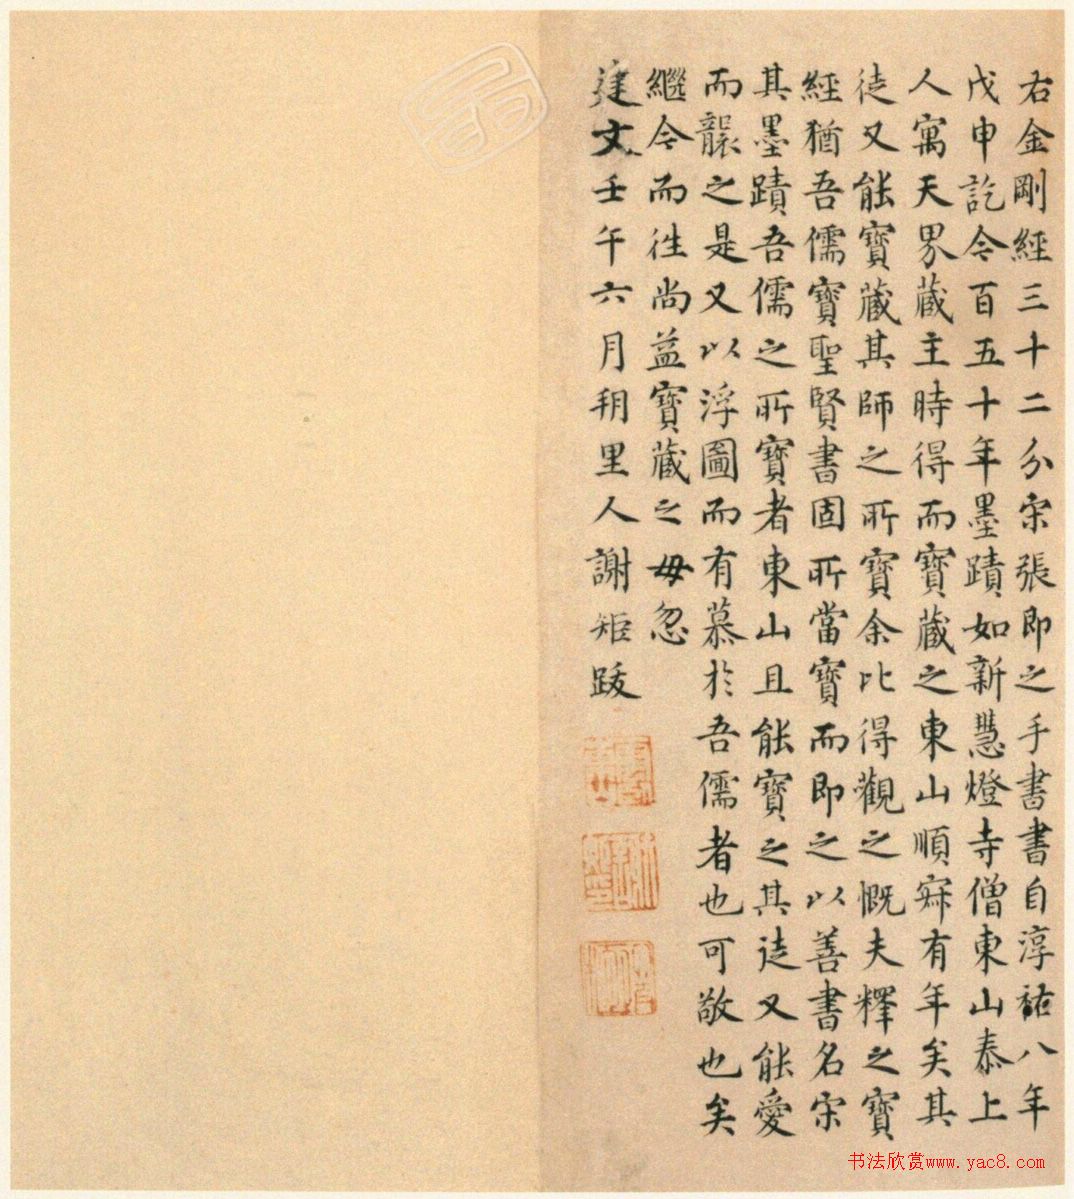 右金剛經三十二分宋張即之手書書自淳祐八年
戊申訖今百五十年墨蹟如新慧燈寺僧東山泰上
人寓天界藏主時得而寶藏之東山順寂有年矣其
徒又能寶藏其師之所寶余比得觀之慨夫釋之寶
經猶吾儒寶聖賢書固所當寶而即之以善書名宋
其墨蹟吾儒之所寶者東山且能寶之其徒又能愛
而襲之是又以浮圖而有慕於吾儒者也可敬也矣
繼今而往尚益寶藏之毋忽
建文壬午六月朔里人謝矩跋
书法欣赏www.yac8.com